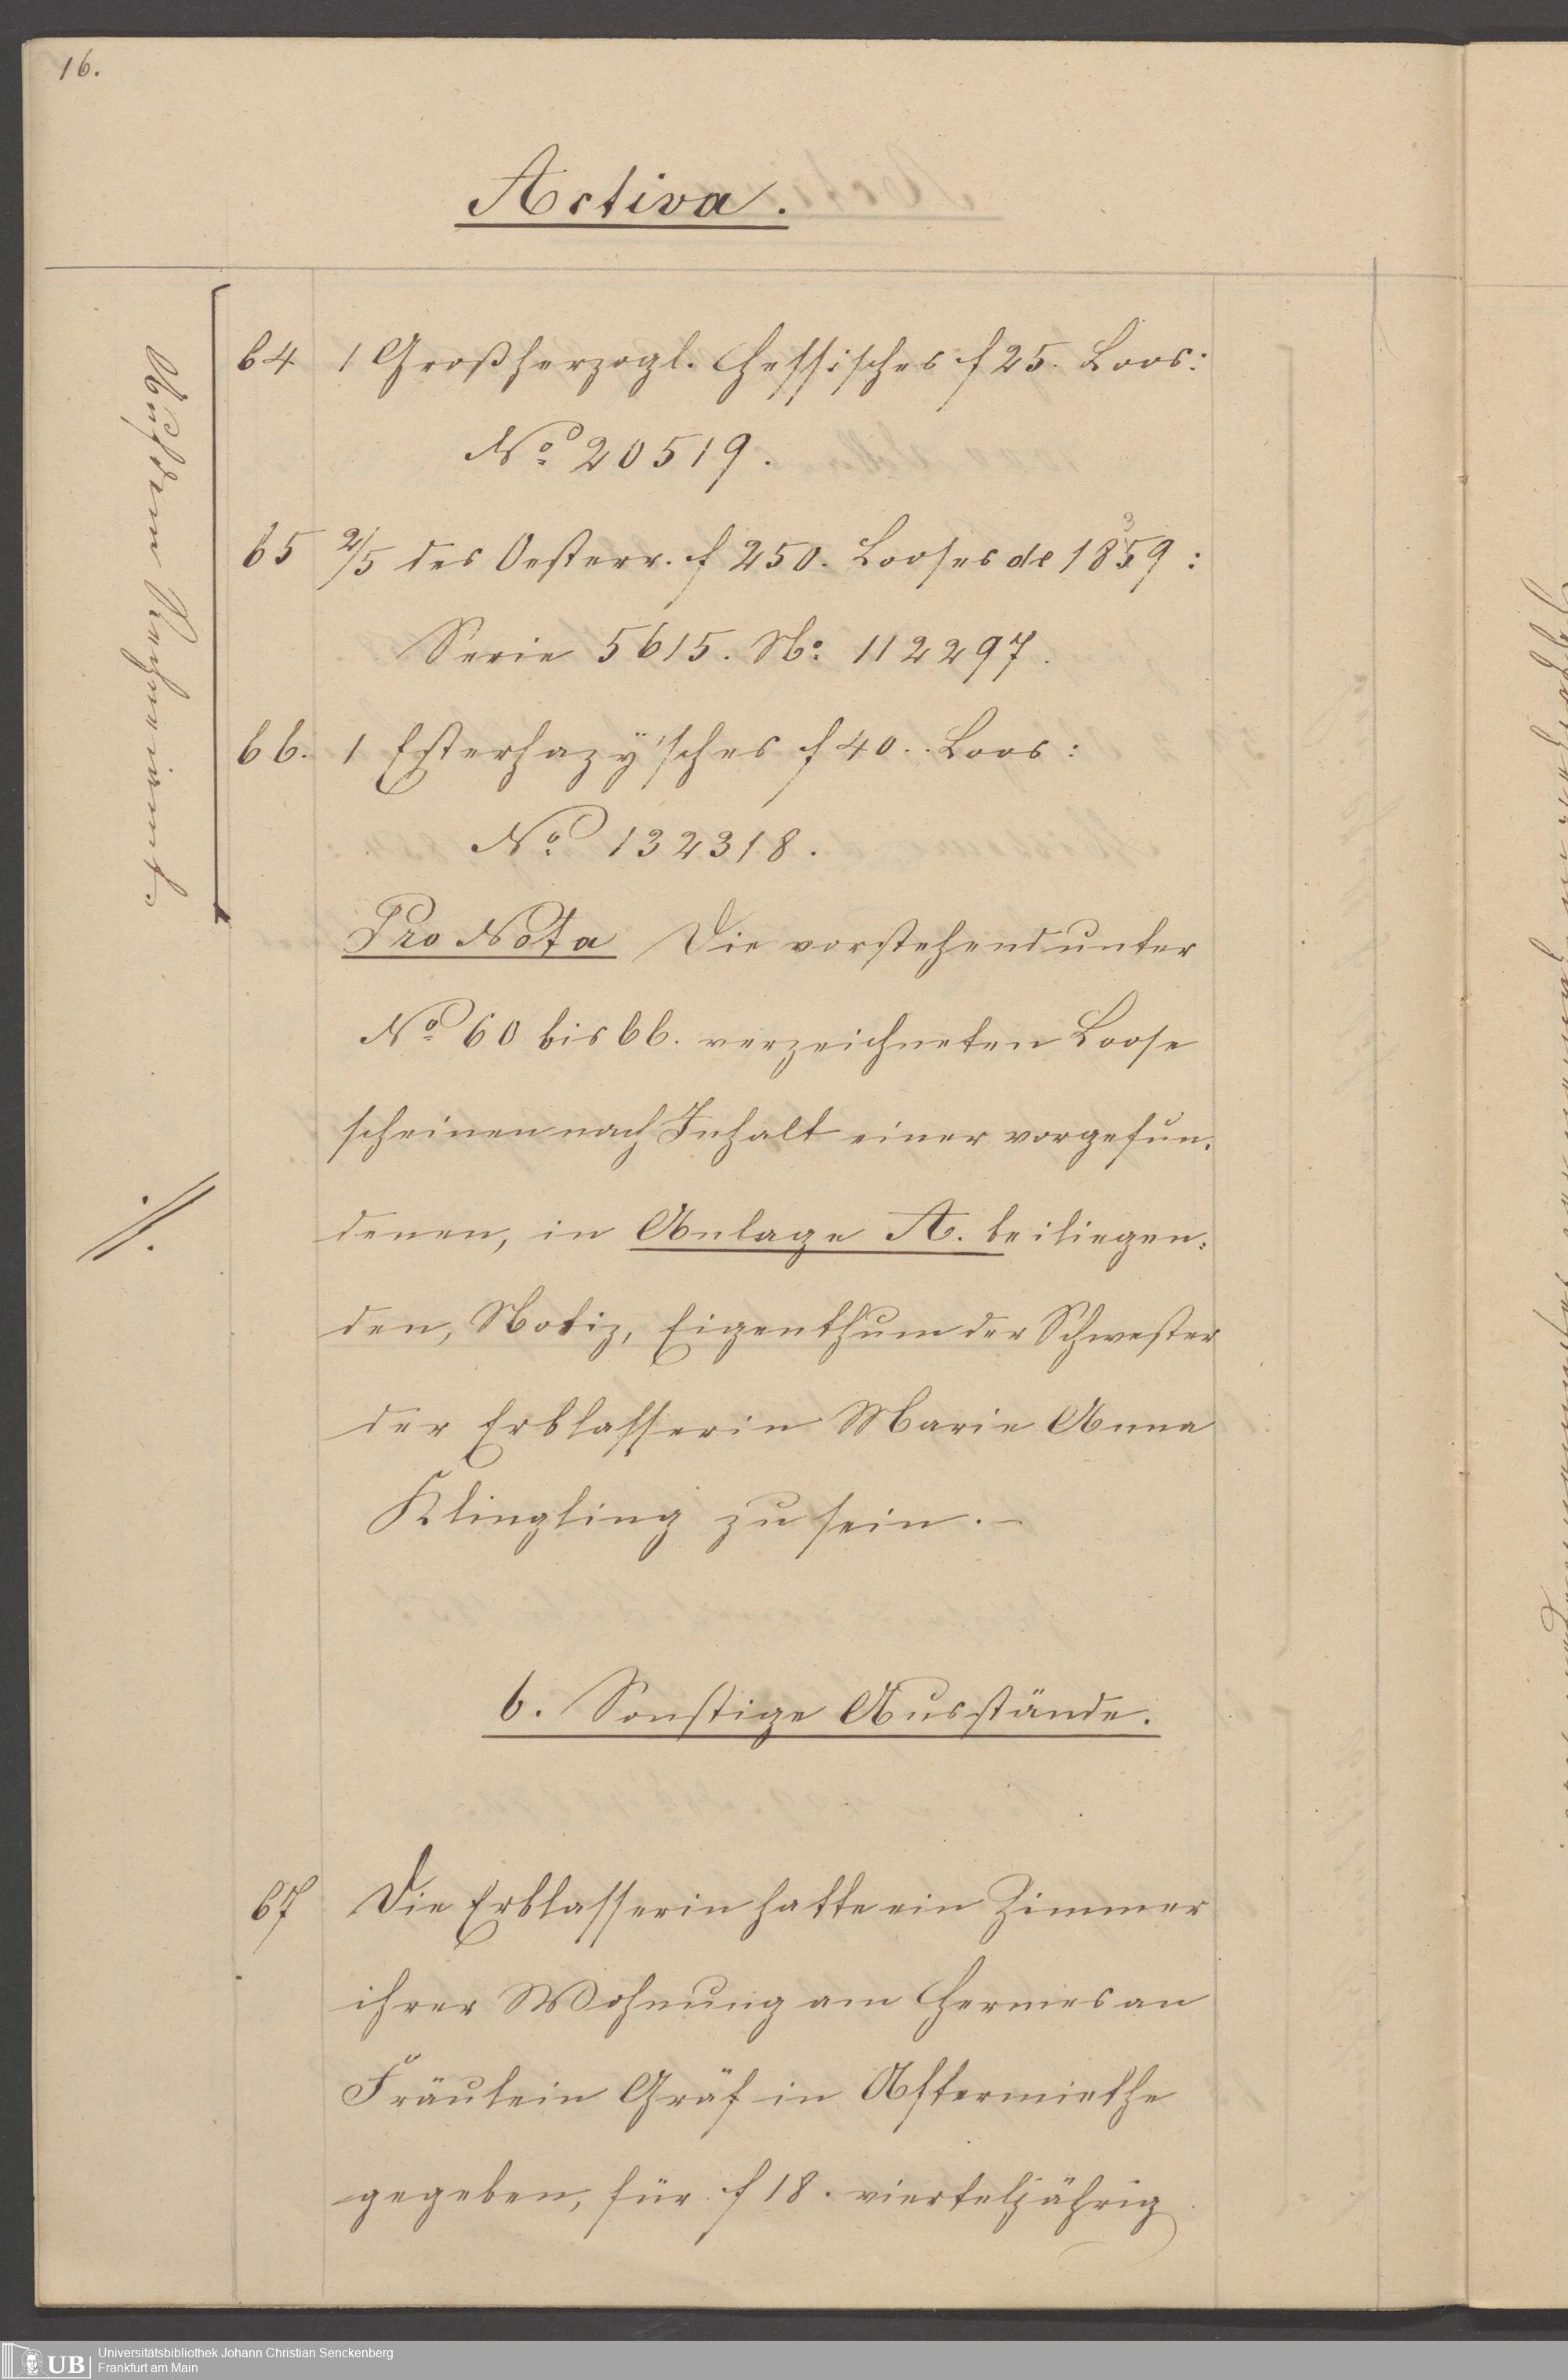 16.
Activa.
Auf dem Rechneiamt.
64 1 Großherzogl. Hessisches f 25. Loos:
No 20519.
65 2/5 des Oesterr. f 250. Looses de 1859:
3
Serie 5615. No: 112297.
66. 1 Esterhazy'sches f 40. Loos:
No 132318.
Pro Nota Die vorstehend unter
No 60 bis 66. verzeichneten Loose
scheinen nach Inhalt einer vorgefun-
//. denen, in Anlage A. beiliegen-
den, Notiz, Eigenthum der Schwester
der Erblasserin Marie Anna
Klingling zu sein. –
6. Sonstige Ausstände.
67 Die Erblasserin hatte ein Zimmer
ihrer Wohnung am Hermes an
Fräulein Gräf in Aftermiethe
gegeben, für f 18. vierteljährig
UB Universitätsbibliothek Johann Christian Senckenberg
Frankfurt am Main